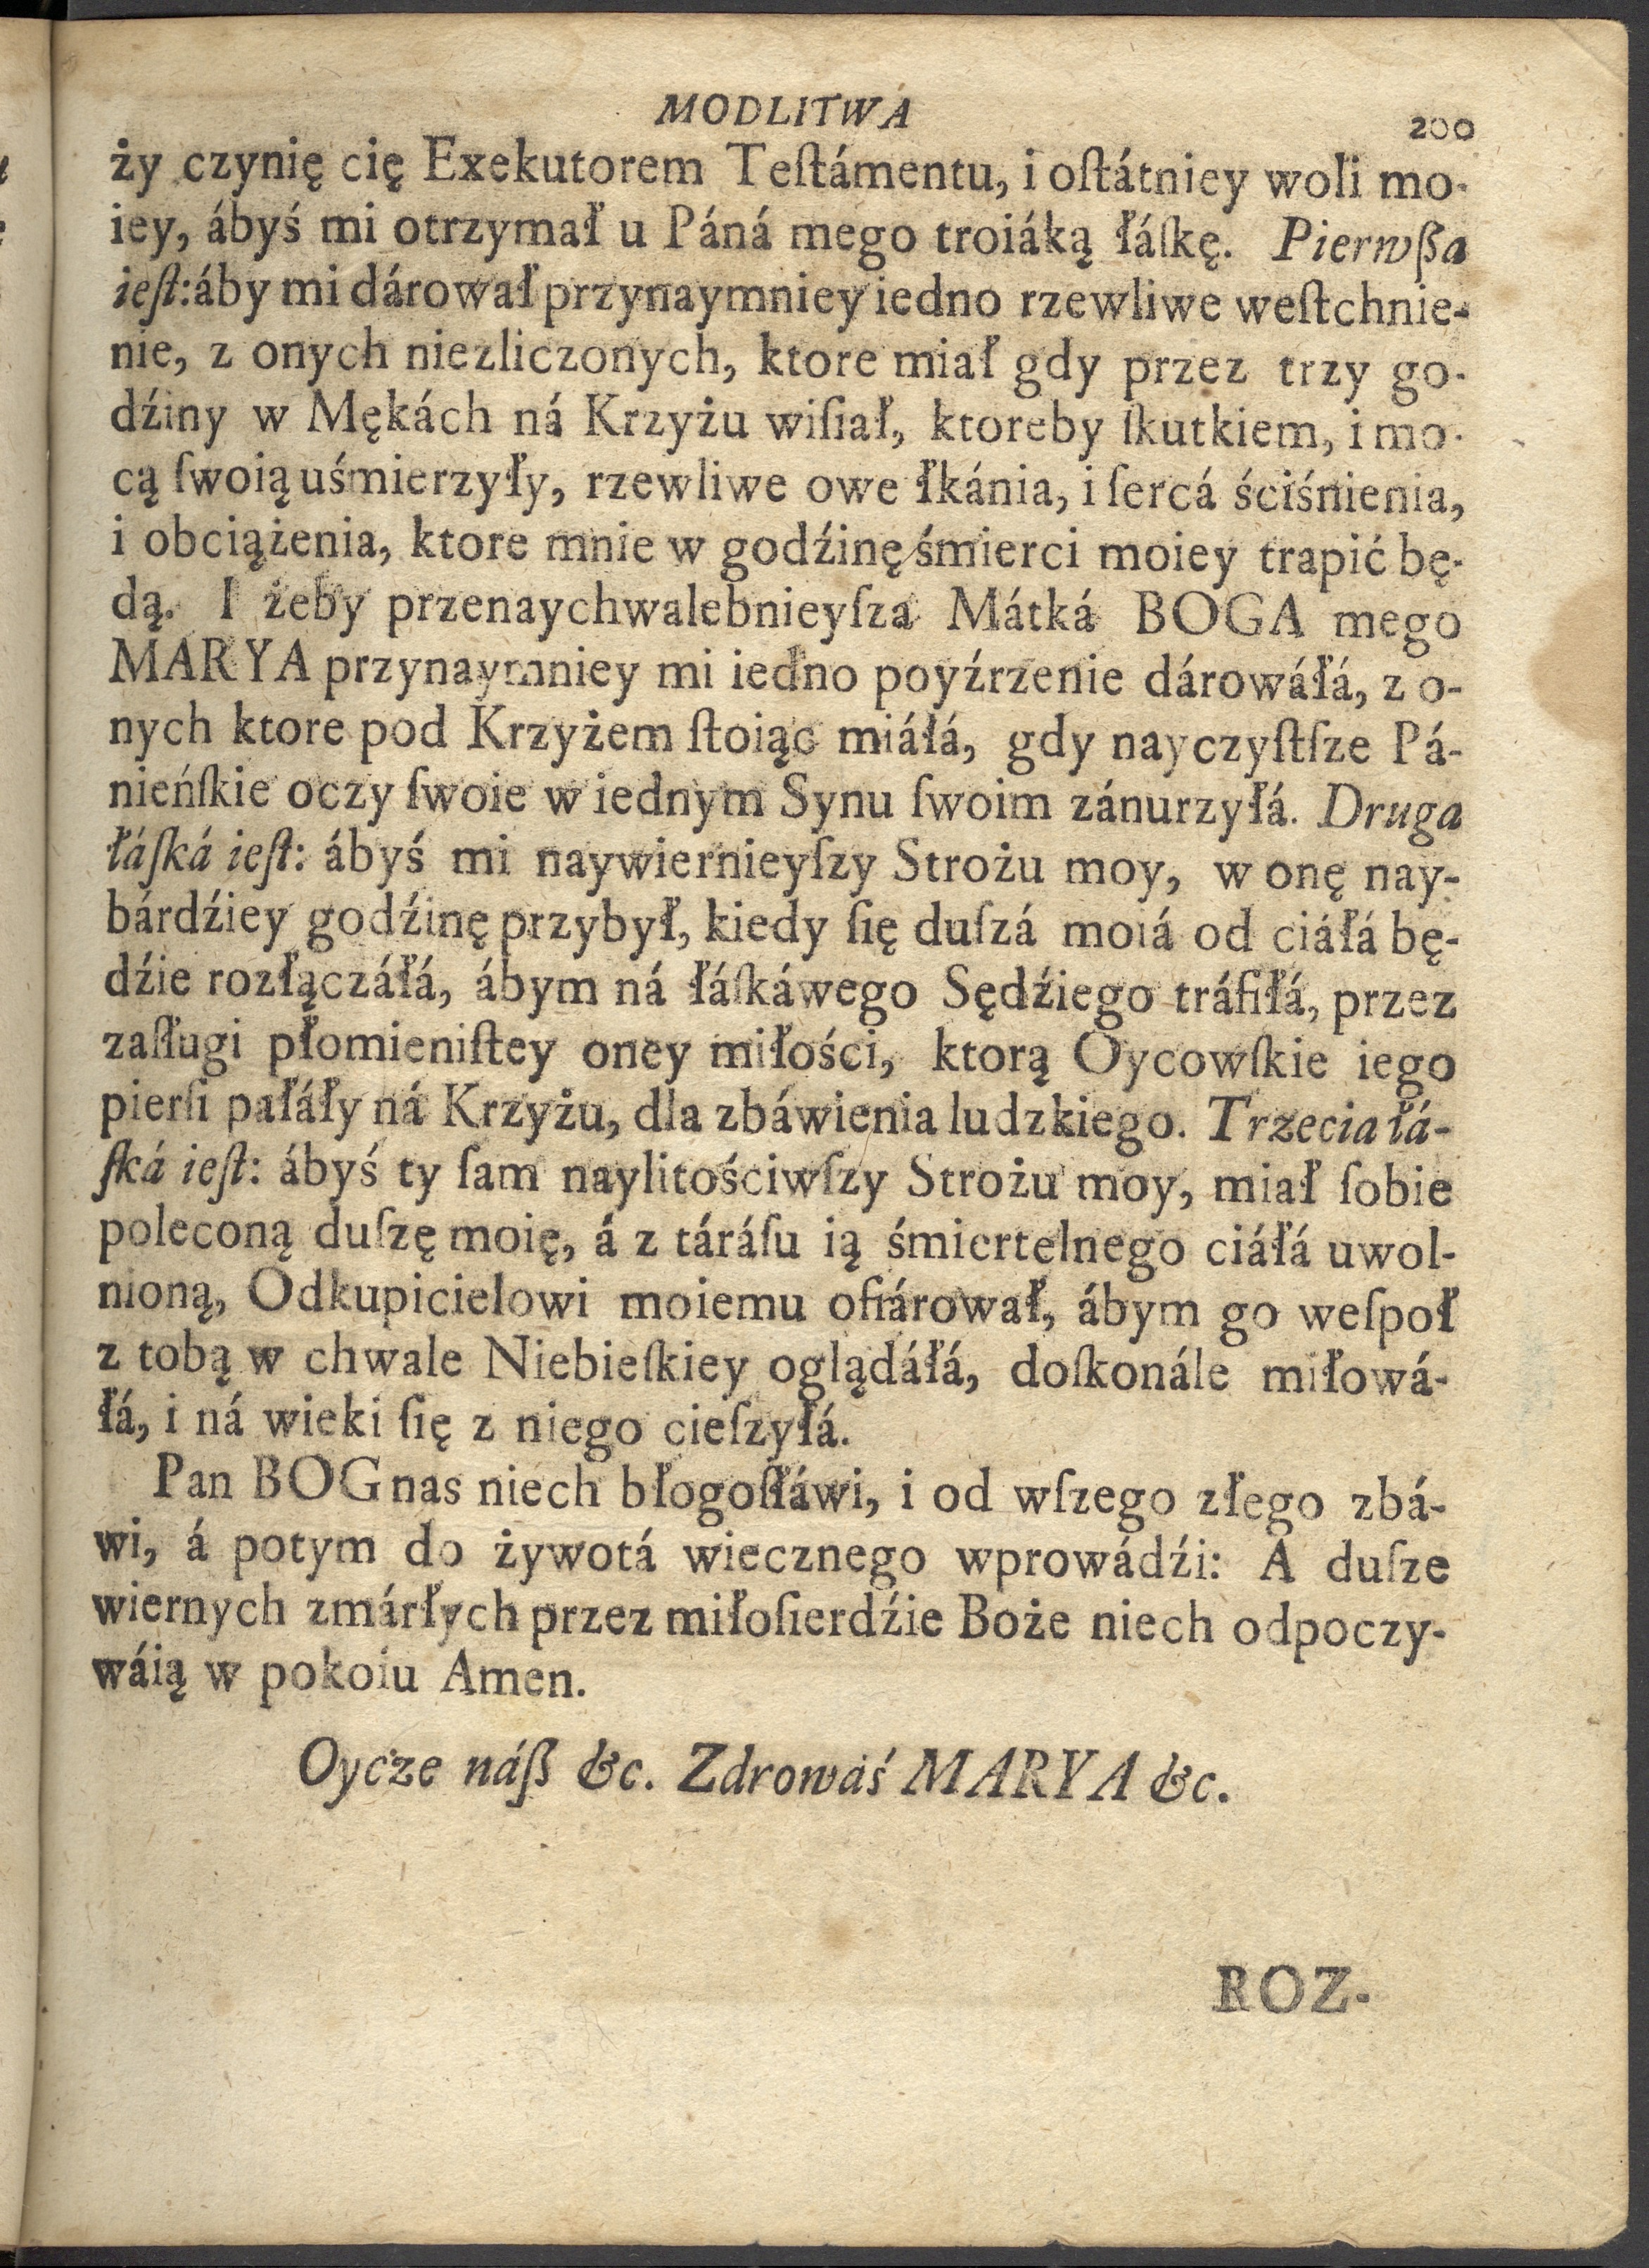 MODLITWÁ
200
ży czynię cię Exekutorem Teſtámentu, i oſtátniey woli mo-
iey, ábyś mi otrzymał u Páná mego troiáką łáſkę. Pierwßa
ieſt: áby mi dárował przynaymniey iedno rzewliwe weſtchnie-
nie, z onych niezliczonych, ktore miał gdy przez trzy go-
dźiny w Mękách ná Krzyżu wiſiał, ktoreby ſkutkiem, i mo-
cą ſwoią uśmierzyły, rzewliwe owe łkánia, i ſercá ściśnienia,
i obciążenia, ktore mnie w godźinę śmierci moiey trapić bę-
dą. I żeby przenaychwalebnieyſza Mátká BOGA mego
MARYA przynaymniey mi iedno poyźrzenie dárowáłá, z o-
nych ktore pod Krzyżem ſtoiąc miáłá, gdy nayczyſtſze Pá-
nieńſkie oczy ſwoie w iednym Synu ſwoim zánurzyłá. Druga
łáſká ieſt: ábyś mi naywiernieyſzy Strożu moy, w onę nay-
bárdźiey godźinę przybył, kiedy ſię duſzá moiá od ciáłá bę-
dźie rozłączáłá, ábym ná łáſkáwego Sędźiego tráfiłá, przez
zaſługi płomieniſtey oney miłości, ktorą Oycowſkie iego
pierſi pałáły ná Krzyżu, dla zbáwienia ludzkiego. Trzecia łá-
ſká ieſt: ábyś ty ſam naylitościwſzy Strożu moy, miał ſobie
poleconą duſzę moię, á z táráſu ią śmiertelnego ciáłá uwol-
nioną, Odkupicielowi moiemu ofiárował, ábym go weſpoł
z tobą w chwale Niebieſkiey oglądáłá, doſkonále miłowá-
łá, i ná wieki ſię z niego cieſzyłá.
Pan BOG nas niech błogoſłáwi, i od wſzego złego zbá-
wi, á potym do żywotá wiecznego wprowádźi: A duſze
wiernych zmárłych przez miłoſierdźie Boże niech odpoczy-
wáią w pokoiu Amen.
Oycze náß &c. Zdrowáś MARYA &c.
ROZ-